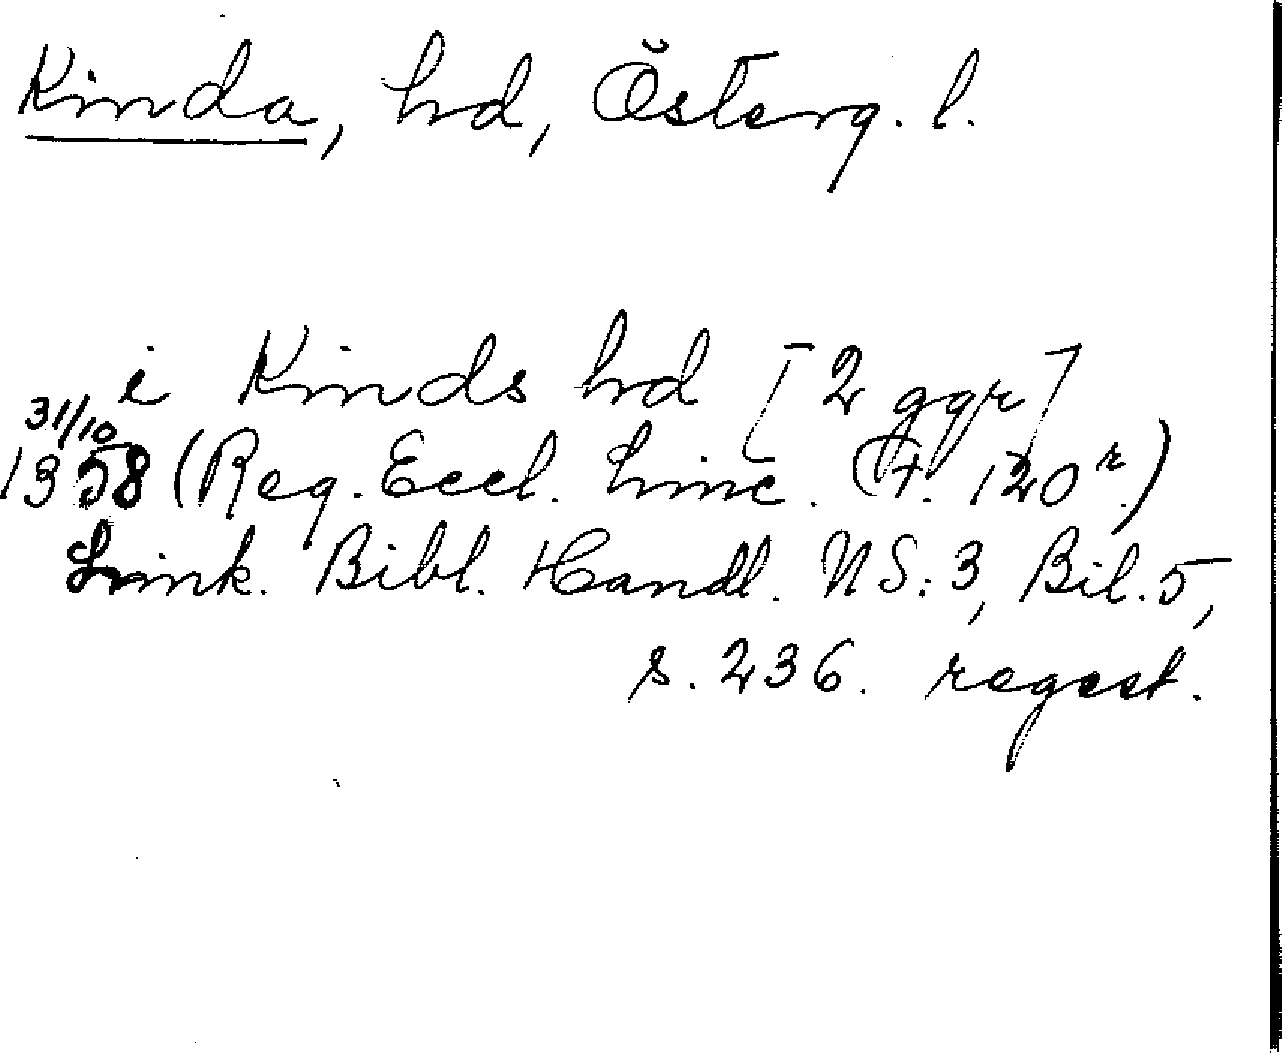 Kinda, hd, Österg. l.
i Kinds hd [2 ggr]
31/10
1358 (Reg. Eccl. Linc. f. 120r.)
Link. Bibl. Handl. NS:3, Bil. 5,
s. 236. regest.